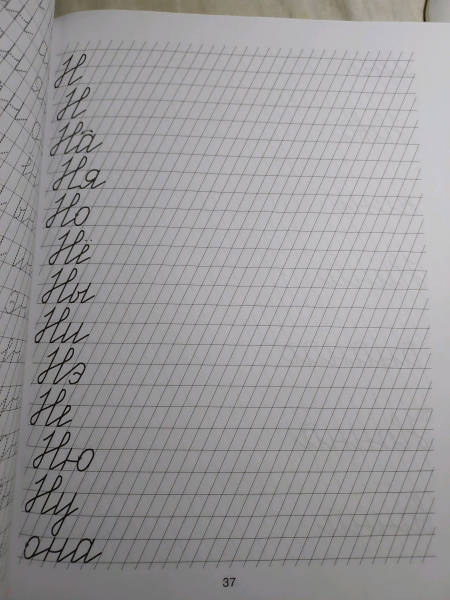 Н
Н
На
Ня
Но
Нё
Ны
Ни
Нэ
Не
Ню
Ну
она
37